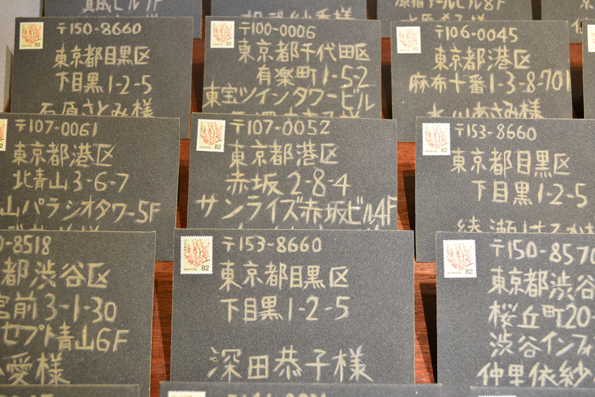 〒150-8660
東京都目黒区
下目黒1-2-5
石原さとみ様
〒100-0006
東京都千代田区
有楽町1-5-2
東宝ツインタワービル
〒106-0045
東京都港区
麻布十番1-3-8-701
〒107-0061
東京都港区
北青山3-6-7
山パラシオタワー5F
〒107-0052
東京都港区
赤坂2-8-4
サンライズ赤坂ビル4F
〒153-8660
東京都目黒区
下目黒1-2-5
綾瀬はるか
0-8518
都渋谷区
宮前3-1-30
セプト青山6F
愛様
〒153-8660
東京都目黒区
下目黒1-2-5
深田恭子様
〒150-8570
東京都渋谷
桜丘町20-
渋谷インフォ
仲里依紗
82
82
82
82
82
82